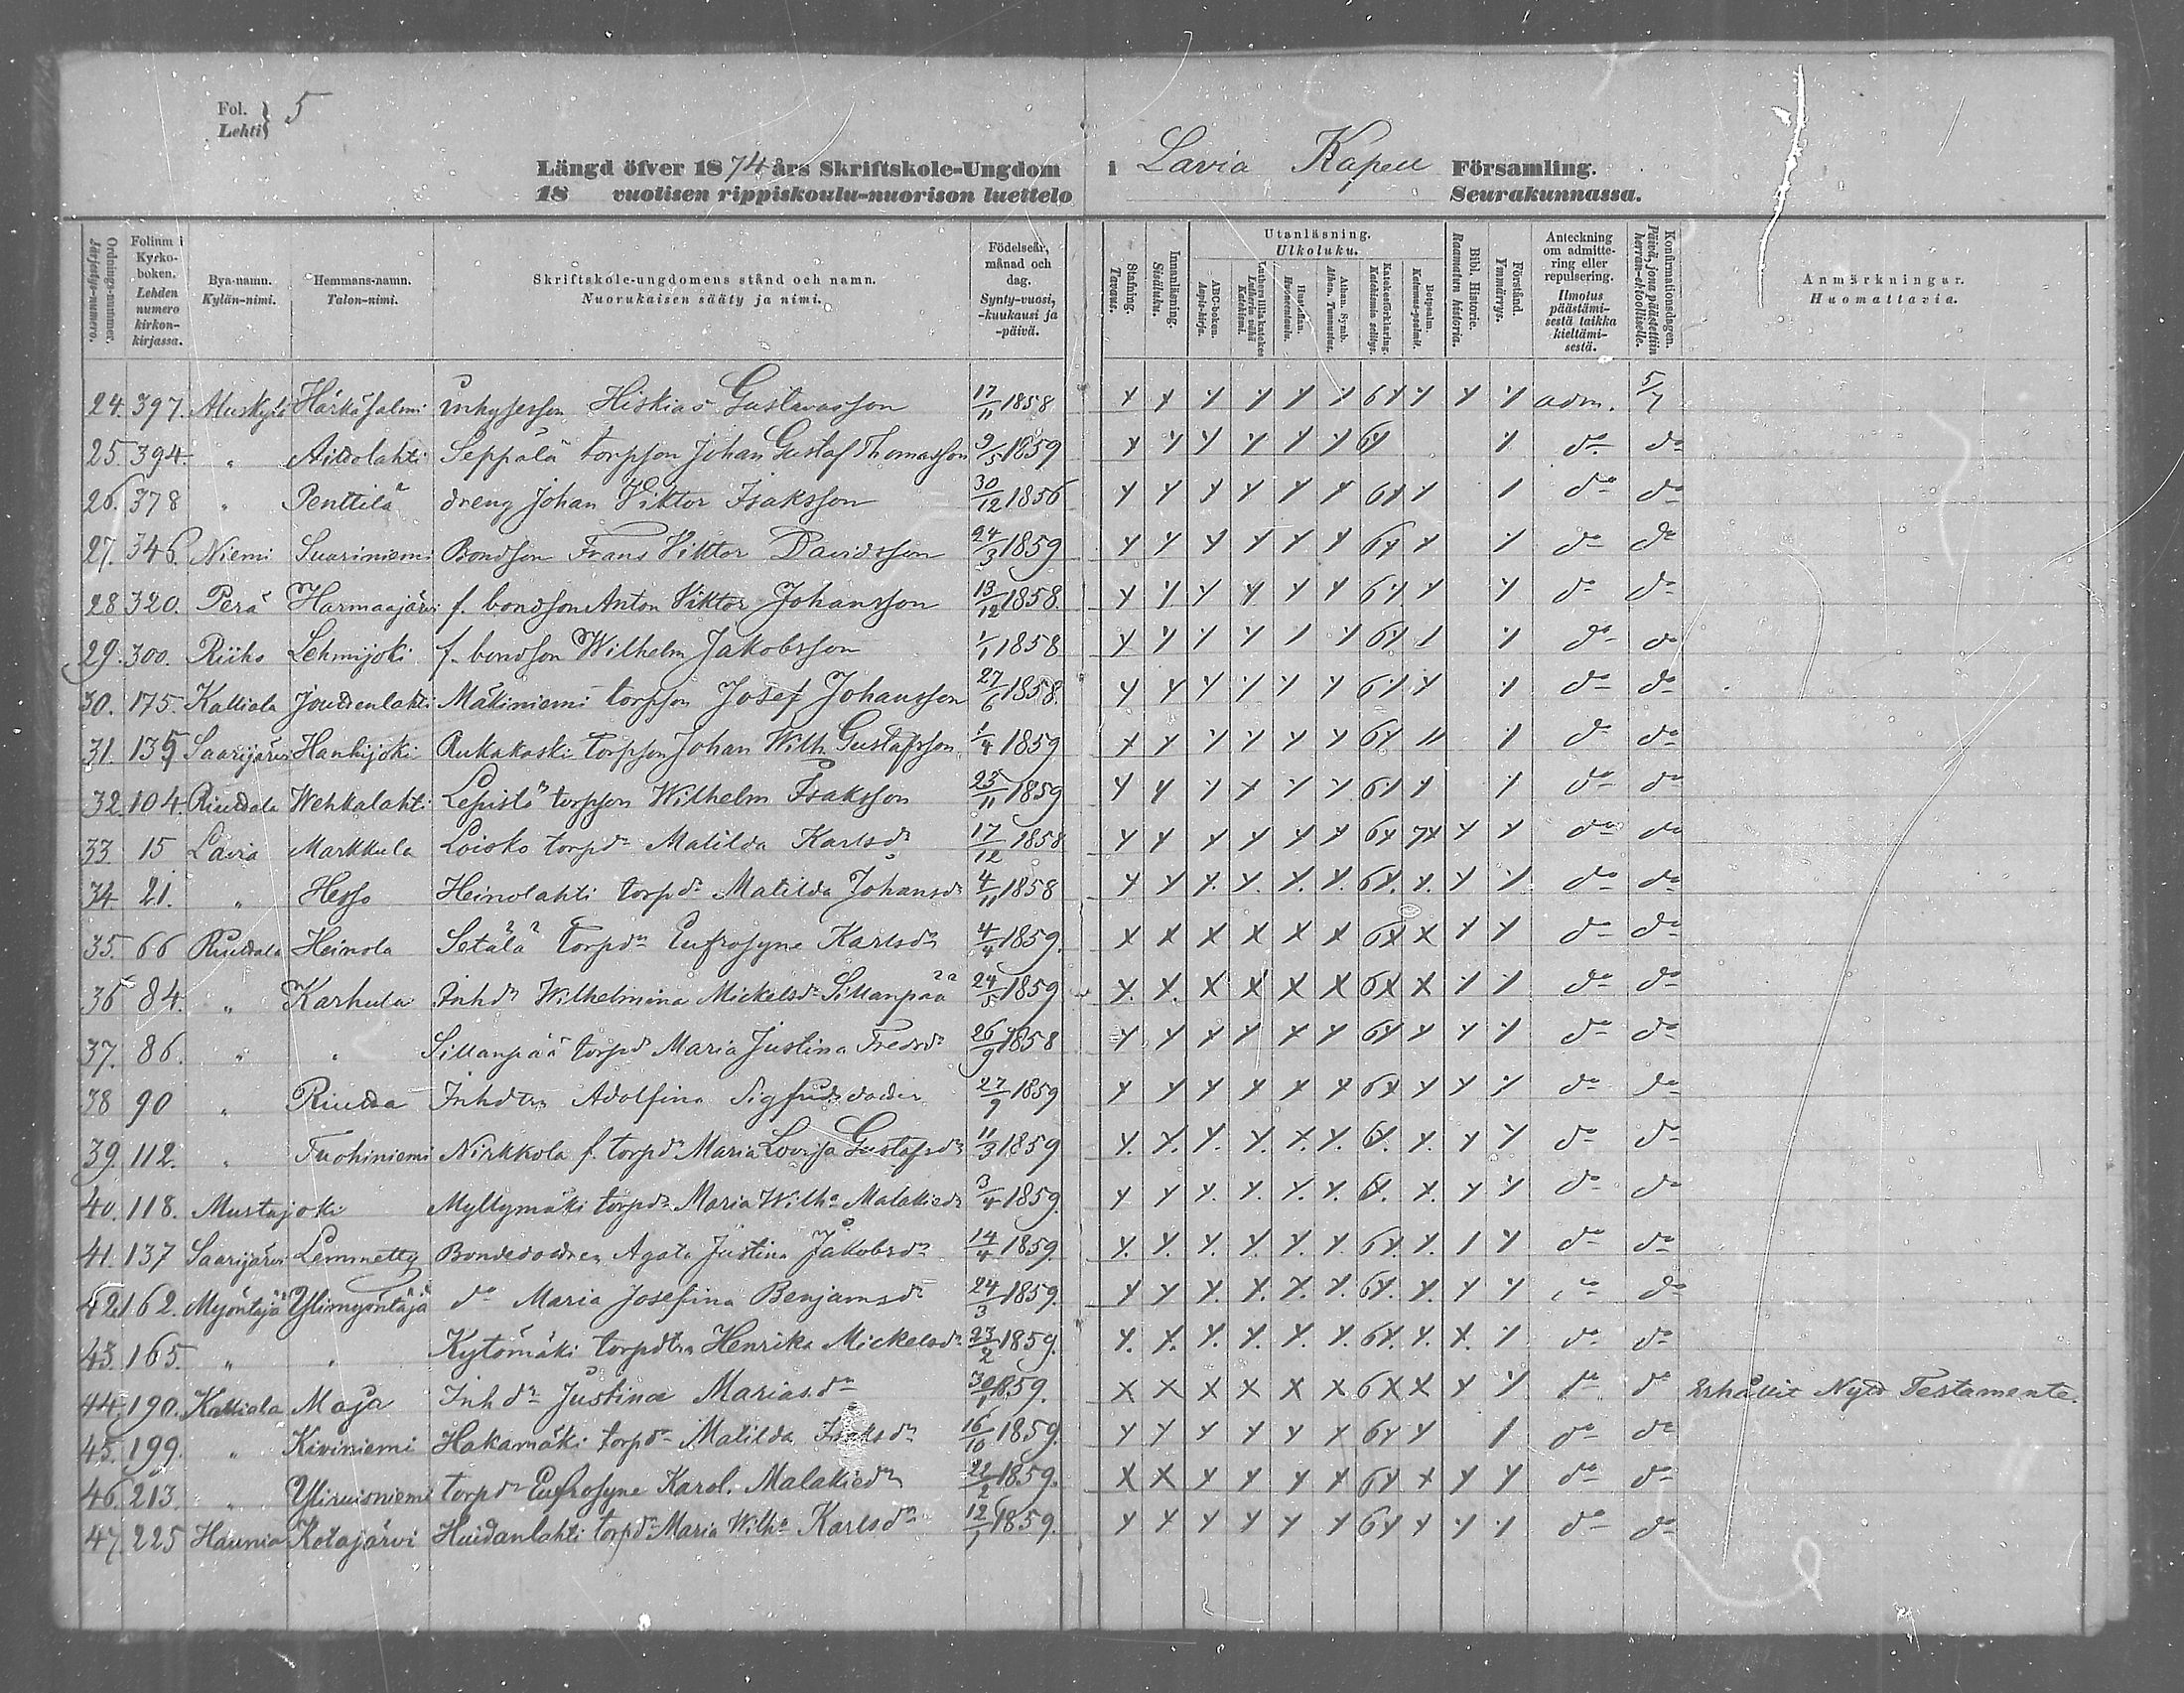 Fol. } 5
Lehti }
Längd öfver 1874 års Skriftskole-Ungdom i Lavia Kapell Församling.
18 vuotisen rippiskoulu-nuorison luettelo Seurakunnassa.
Ordnings-nummer. Järjestys-numero.
Folium i Kyrko-boken. Lehden numero kirkon-kirjassa.
Bya-namn. Kylän-nimi.
Hemmans-namn. Talon-nimi.
Skriftskole-ungdomens stånd och namn. Nuorukaisen sääty ja nimi.
Födelseår, månad och dag. Synty-vuosi, -kuukausi ja -päivä.
Stafning. Tavaus.
Innanläsning. Sisäluku.
Utanläsning. Ulkoluku.
ABC-boken. Aapis-kirja.
Luthers lilla katekes Lutherin vähä Katekismi.
Hustaflan. Huoneentaulu.
Athan. Symb. Athan. Tunnustus.
Katekesförklaring. Katekismin selitys.
Botpsalm. Katumus-psalmit.
Bibl. Historie. Raamatun historia.
Förstånd. Ymmärrys.
Anteckning om admittering eller repulsering. Ilmotus päästämisestä taikka kieltämisestä.
Konfirmationsdagen. Päivä, jona päästettiin herran-ehtoolliselle.
Anmärkningar. Huomattavia.
24. 397. Härkäsalmi Hiskias Gustavsson 17/11 1858 adm. 5/7
25. 394. " Seppälä torpson Johan Gustaf Thomasson 9/5 1859 do do
26. 378 " Penttilä dreng Johan Viktor Isaksson 30/12 1856 do do
27. 346. Niemi Suariniemi Bondson Frans Viktor Davidsson 24/3 1859 do do
28 320. Perä Harmaajärvi f. bondson Anton Viktor Johansson 13/12 1858. do do
29. 300. Riiho Lehmijoki f. bondson Wilhelm Jakobsson 1/1 1858 do do
30. 175. Kalliala Mäkiniemi torpson Josef Johansson 27/6 1858. do do
31. 135 Saarijärvi Hankijoki Rukakaski torpson Johan Wilh. Gustafsson 1/4 1859 do do
32. 104. Riuttala Wehkalahti Lepistö torpson Wilhelm Isaksson 25/11 1859 do do
33 15 Lavia Markkula Loisko torpdr Matilda Karlsdr 17/12 1858 do do
34 21. " Hesso Heinolahti torpdr Matilda Johansdr 4/11 1858 do do
35. 66 Riuttala Heinola Setälä torpdr Eufrosyne Karlsdr 4/4 1859. do do
36 84. " Karhula Inhdr Wilhelmina Mickelsdr Sillanpää 24/5 1859 do do
37. 86. " " Sillanpää torpdr Maria Justina Fredrdr 26/9 1858 do do
38 90 " Riutta Inhdtr Adolfina Sigfridsdotter 27/9 1859 do do
39. 112. " Tuohiniemi Nirkkola f. torpdr Maria Lovisa Gustafsdr 11/3 1859 do do
40. 118. Mustajoki Myllymäki torpdr Maria Wilha Malakiedr 3/4 1859. do do
41. 137 Saarijärvi Lemmetty Bondedottren Agata Justina Jakobsdr 14/4 1859. do do
42. 162. Myöntäjä Ylimyöntäjä do Maria Josefina Benjamsdr 24/3 1859. do do
43. 165. " " Kytömäki torpdtr Henrika Mickelsdr 23/2 1859. do do
44. 190. Kalliala Maja Inhdr Justina Mariasdr 1859. do do Erhållit Nytt Testamente.
45. 199. " Kiviniemi Hakamäki torpdr Matilda Isaksdr 16/10 1859. do do
46. 213 " Yliruisniemi torpdr Eufrosyne Karol. Malakiedr 22/2 1859. do do
47. 225 Haunia Kotajärvi Huidanlahti torpdr Maria Wilha Karlsdr 12/1 1859. do do